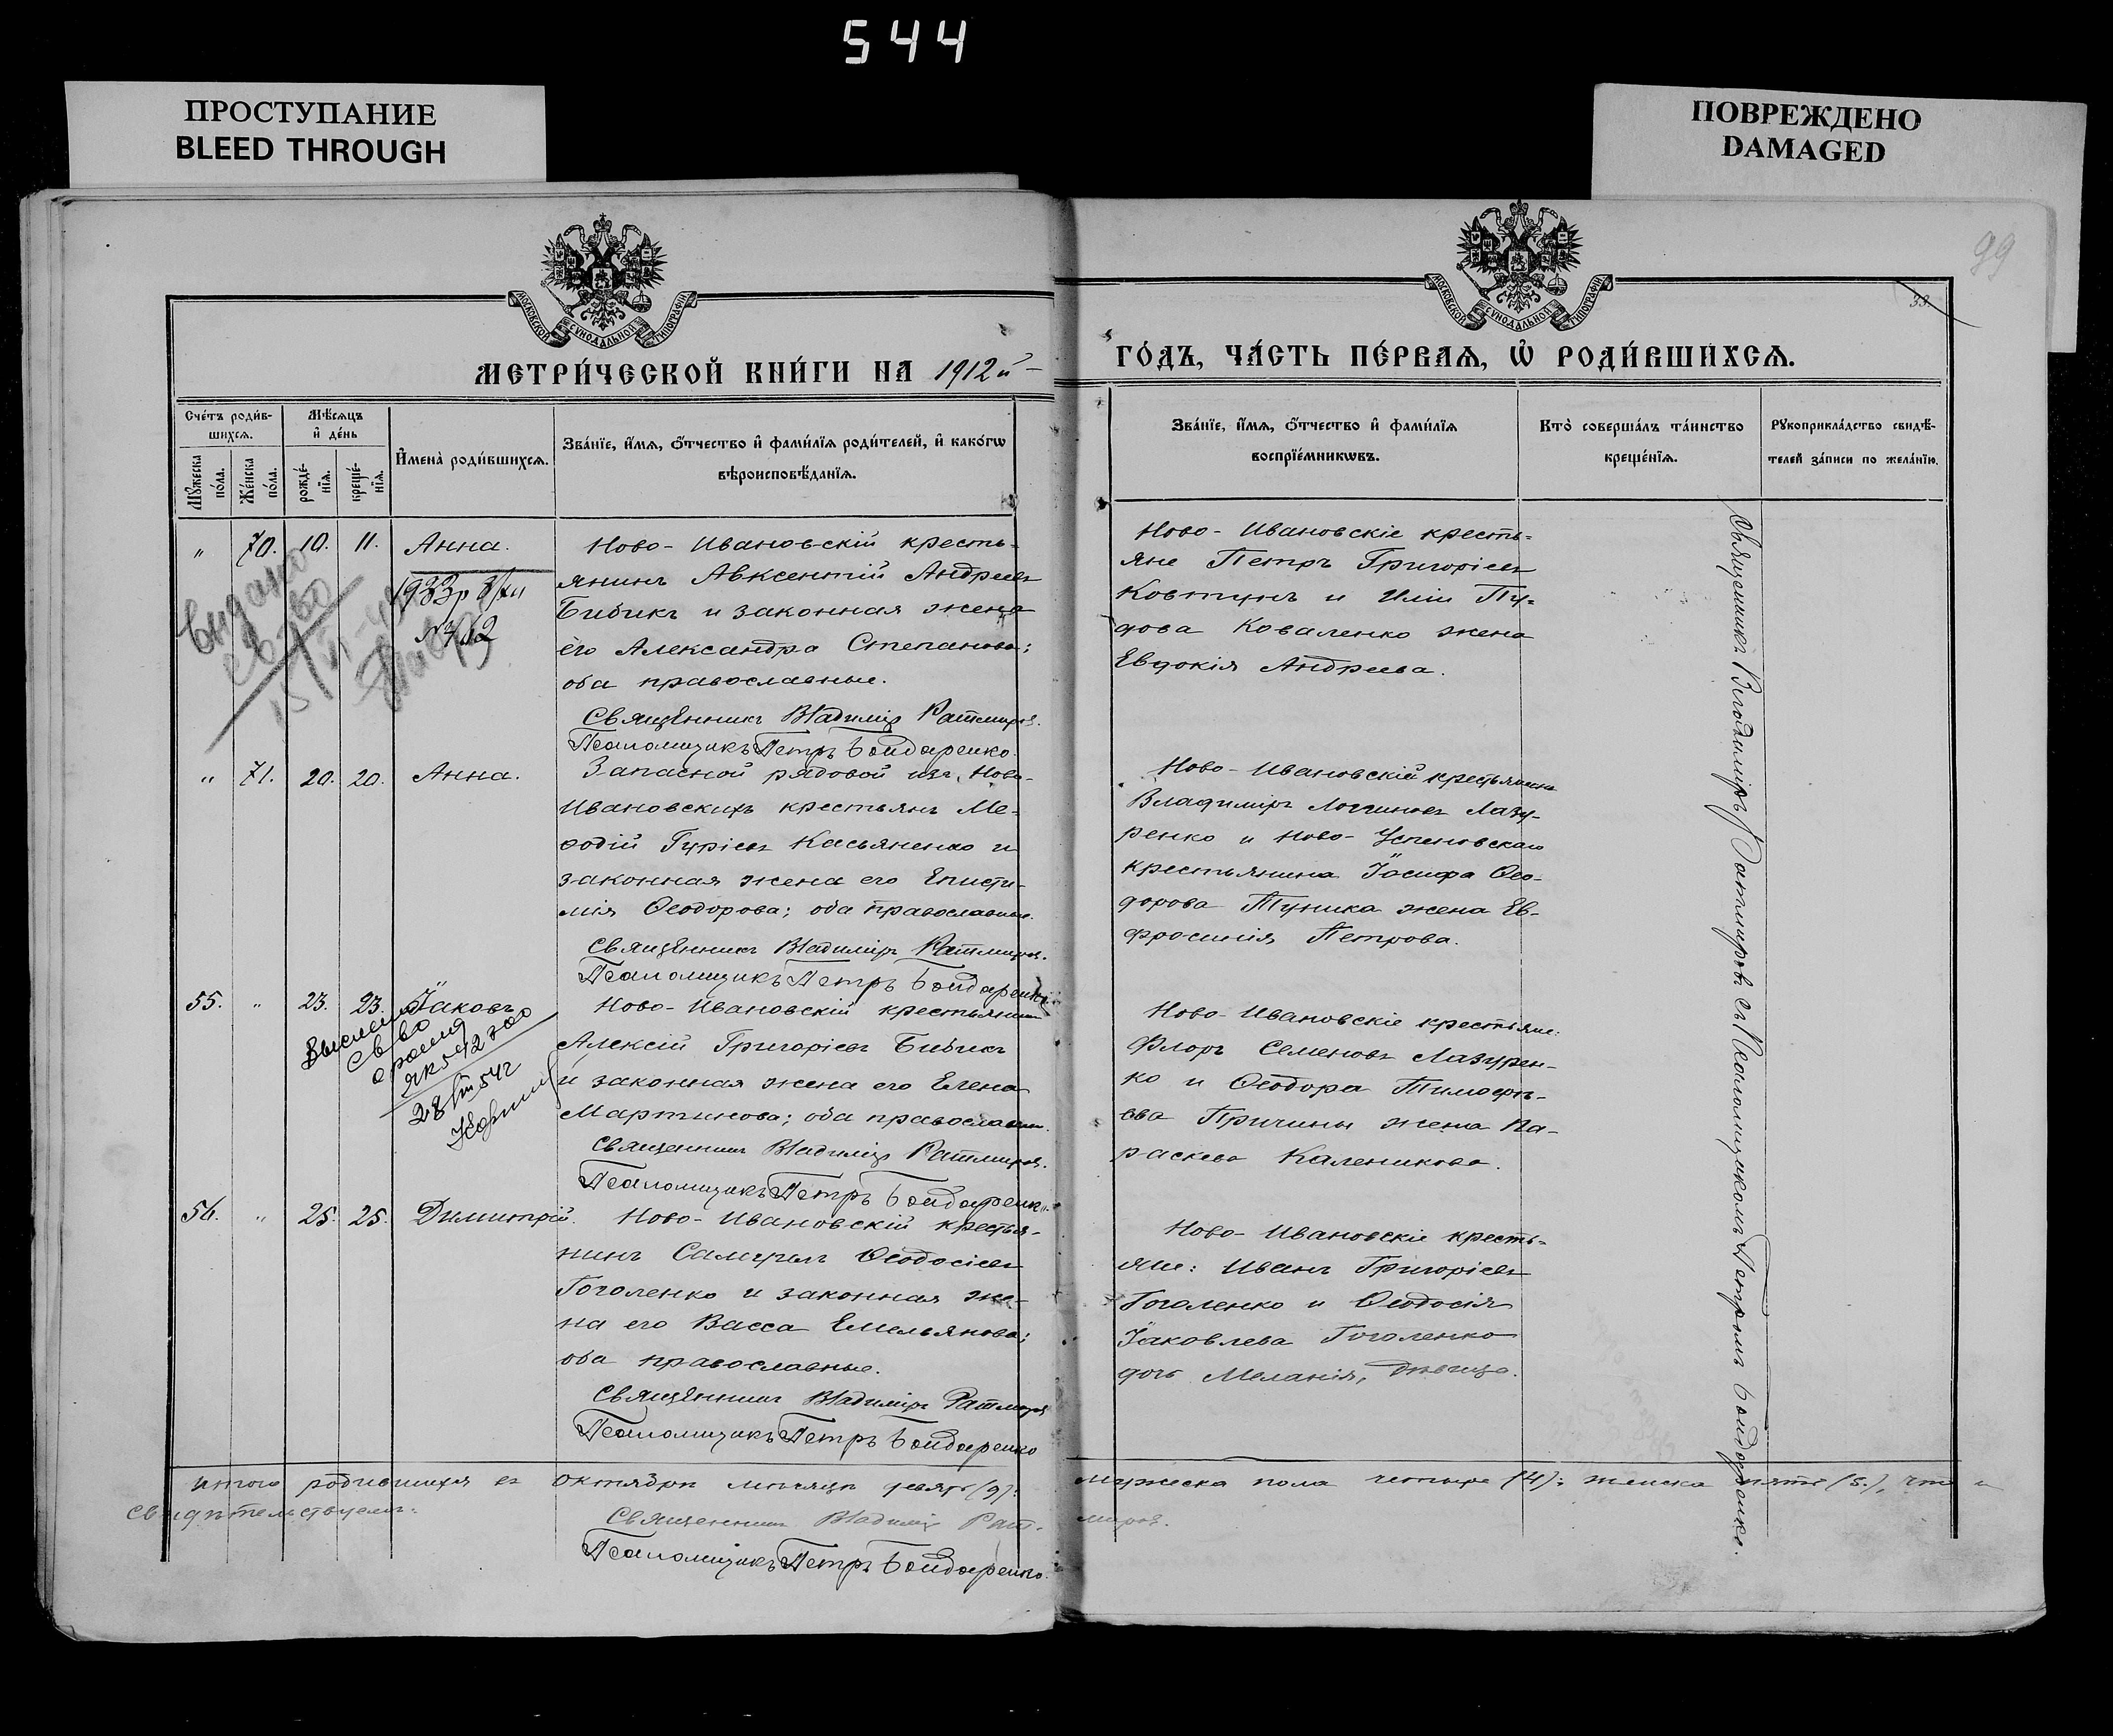 544
ПРОСТУПАНИЕ
BLEED THROUGH
ПОВРЕЖДЕНО
DAMAGED
99
33.
МОСКОВСКОЙ СѴНОДАЛЬНОЙ ТИПОГРАФІИ
МОСКОВСКОЙ СѴНОДАЛЬНОЙ ТИПОГРАФІИ
МЕТРИ́ЧЕСКОЙ КНИ́ГИ НА 1912й
ГО́ДЪ, ЧА́СТЬ ПЕ́РВАѦ, Ѡ҆ РОДИ́ВШИХСѦ.
Сче́тъ роди́в-
шихсѧ.
Мѹ́жеска по́ла.
Же́нска по́ла.
Мѣ́сѧцъ
и҆ де́нь
рожде́-
нїѧ.
креще́-
нїѧ.
И҆мена̀ роди́вшихсѧ.
Зва́нїе, и҆́мѧ, ѻ҆́тчество и҆ фами́лїѧ роди́телей, и҆ како́гѡ
вѣроисповѣ́данїѧ.
Зва́нїе, и҆́мѧ, ѻ҆́тчество и҆ фами́лїѧ
воспрїе́мникѡвъ.
Кто̀ соверша́лъ та́инство
креще́нїѧ.
Рѹкоприкла́дство свидѣ́-
телей за́писи по жела́нїю.
" 70. 10. 11. Анна.
Ново-Ивановскій кресть-
янинъ Авксентій Андреевъ
Бибикъ и законная жена
его Александра Степанова;
оба православные.
Священникъ Владиміръ Ратмировъ.
Псаломщикъ Петръ Бондаренко.
Ново-Ивановскіе кресть-
яне Петръ Григорьевъ
Ковтунъ и Иліи Пу-
дова Коваленко жена
Евдокія Андреева.
" 71. 20. 20. Анна.
Запасной рядовой изъ Ново-
Ивановскихъ крестьянъ Ме-
ѳодій Гурьевъ Касьяненко и
законная жена его Еписти-
мія Ѳеодорова; оба православные.
Священникъ Владиміръ Ратмировъ.
Псаломщикъ Петръ Бондаренко
Ново-Ивановскій крестьянинъ
Владиміръ Логгиновъ Лазу-
ренко и Ново-Успеновскаго
крестьянина Іосифа Ѳео-
дорова Туника жена Ев-
фросинія Петрова.
55. " 23. 23. Іаковъ
28
Ново-Ивановскій крестьянинъ
Алексій Григорьевъ Бибикъ
и законная жена его Елена
Мартинова; оба православные.
Священникъ Владиміръ Ратмировъ.
Псаломщикъ Петръ Бондаренко
Ново-Ивановскіе крестьяне:
Флоръ Семеновъ Лазурен-
ко и Ѳеодора Тимоѳѣ-
ева Причины жена Па-
раскева Каленикова.
56. " 25. 25. Димитрій.
Ново-Ивановскій крестья-
нинъ Самуилъ Ѳеодосіевъ
Гоголенко и законная же-
на его Васса Емельянова;
оба православные.
Священникъ Владиміръ Ратмировъ
Псаломщикъ Петръ Бондаренко
Ново-Ивановскіе кресть-
яне: Иванъ Григорьевъ
Гоголенко и Ѳеодосія
Іаковлева Гоголенко
дочь Меланія, дѣвица.
Священникъ Владиміръ Ратмировъ съ Псаломщикомъ Петромъ Бондаренко.
Итого родившихся въ Октябрѣ мѣсяцѣ девять (9): мужеска пола четыре (4): женска пять (5.), что и
свидѣтельствуемъ:
Священникъ Владиміръ Ратмировъ.
Псаломщикъ Петръ Бондаренко.